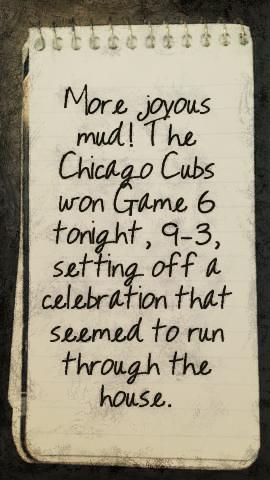 More joyous
mud! The
Chicago Cubs
won Game 6
tonight, 9-3,
setting off a
celebration that
seemed to run
through the
house.